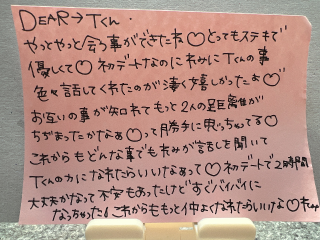 DEAR→Tくん.
やっとやっと会う事ができたネ♡とってもステキで
優しくて♡初デートなのにれみにTくんの事
色々話してくれたのが凄く嬉しかったぁ♡
お互いの事が知れてもっと2人の距離が
ちぢまったかなぁ♡って勝手に思っちゃってる♡
これからもどんな事でもれみが話しを聞いて
Tくんの力になれたらいいなぁって♡初デートで2時間
大丈夫かなって不安もあったけどすぐバイバイに
なっちゃった!これからももっと仲よくなれたらいいな♡れみ